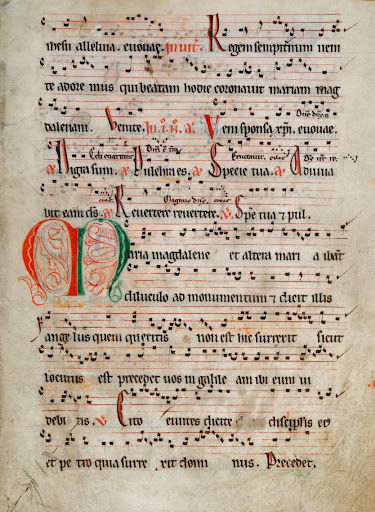 ihesu alleluia. euouae. Inuit. Regem sempiternum ueni
te adore mus qui beatam hodie coronauit mariam mag
dalenam. Venite. In. i. N. a. Veni sponsa xpi, euouae.
a. Nigra sum. a. Pulchra es. a. Specie tua. a. Adiuua
bit eam ds. R. Reuertere reuertere. V. Spe tua & pul.
Maria magdalene et altera mari a ibant
diluculo ad monumentum & dicit illis
ange lus quem queritis non est hic surrexit sicut
locutus est precedet uos in galile am ibi eum ui
debi tis. V. Cito euntes dicite discipulis ei
et pe tro quia surre xit domi nus. Precedet.